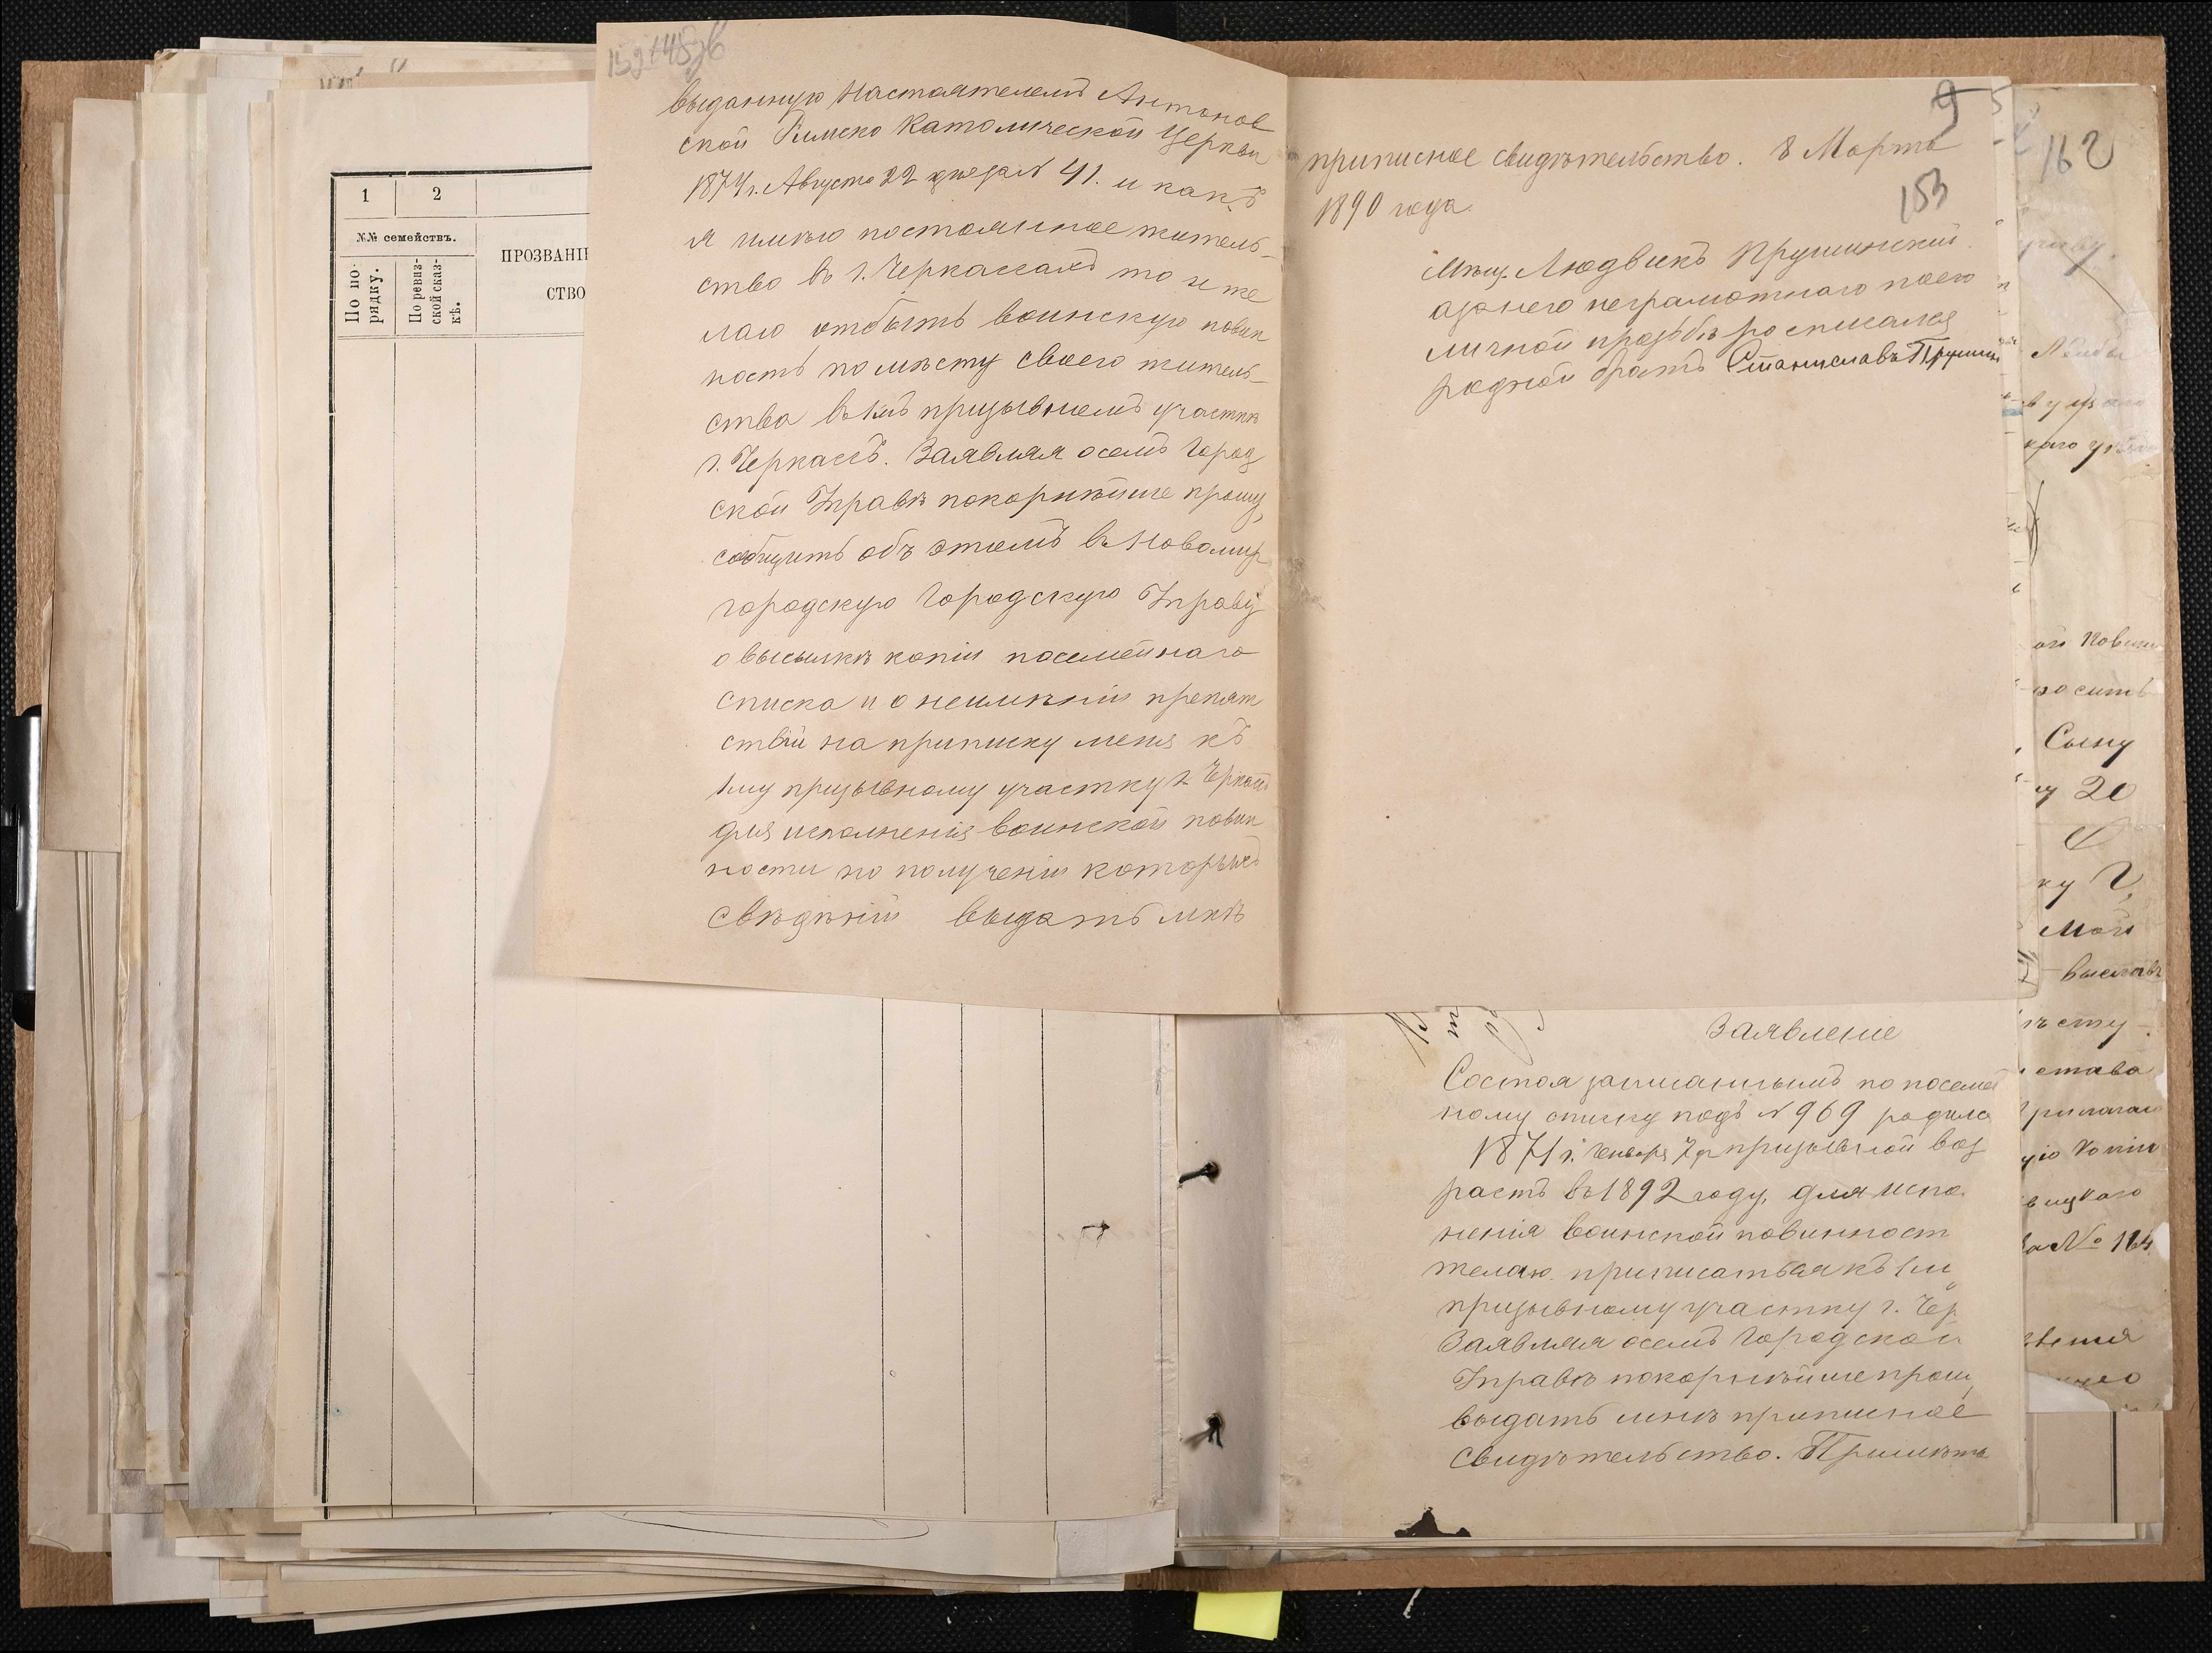 1
2
№№ семействъ.
По по-
рядку.
По ревиз-
ской сказ-
кѣ.
ПРОЗВАНІ
СТВО
выданную Настоятелемъ Антонов
ской Римско Католической Церкви
1874 г. Августа 22 дня за № 41. и какъ
я имѣю постоянное житель-
ство въ г. Черкассахъ то и же
лаю отбыть воинскую повин
ность по мѣсту своего житель-
ства въ 1мъ призывномъ участкѣ
г. Черкассъ. Заявляя осемъ Город
ской Управѣ покорнѣйше прошу,
сообщить объ этомъ въ Новомир
городскую Городскую Управу
о высылкѣ копіи посемейнаго
списка и о неимѣніи препят
ствій на приписку меня къ
1му призывному участку г. Черкассъ
для исполненія воинской повин
ности по полученіи которыхъ
свѣдѣній выдать мнѣ
9
приписное свидѣтельство. 8 Марта
153
1890 года.
Мѣщ. Людвикъ Прушинскій
а за него неграмотнаго по его
личной прозьбѣ росписался
родной братъ Станиславъ Прушин
162
Заявленіе
Состоя записаннымъ по посемей
ному списку подъ № 969 родился
1871 г. Января 7 дня призывной воз
растъ въ 1892 году, для испо
ненія воинской повинност
желаю приписаться къ 1му
призывному участку г. Чер
Заявляя осемъ Городской
Управѣ покорнѣйше прошу,
выдать мнѣ приписное
свидѣтельство. Примѣты
каго
ой Повин
росить
Сыну
20
ку Г.
мой
ѣсту
става
Прилагаю
ую Копію
№ 164